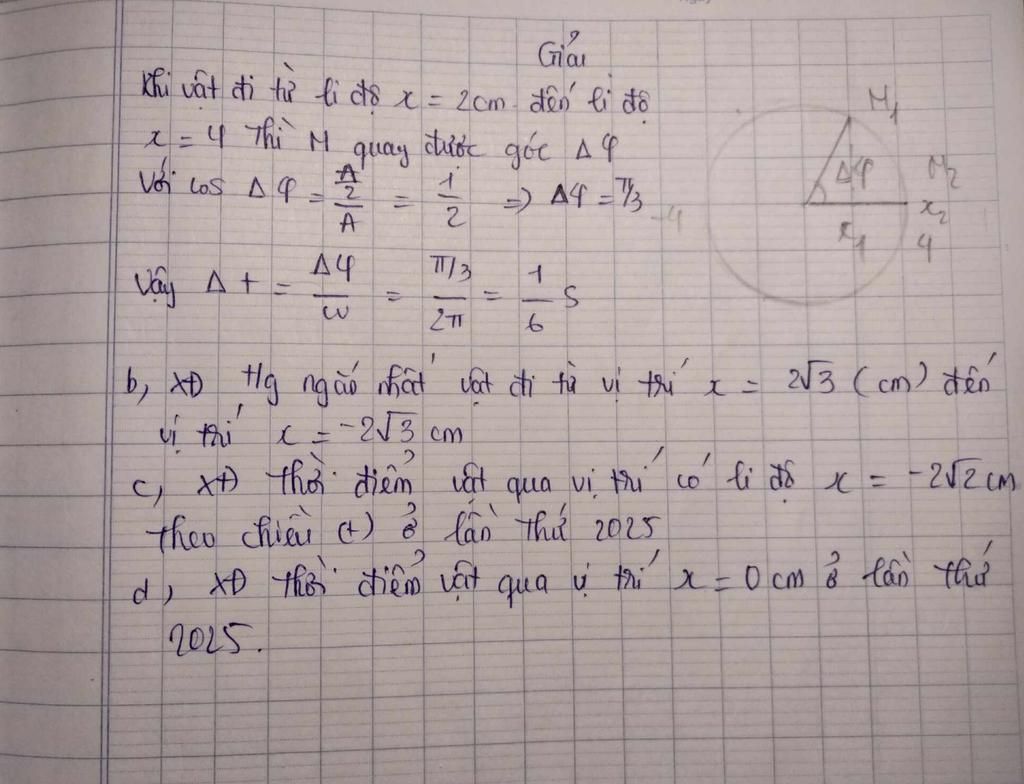 Giải
Khi vật đi từ li độ x = 2cm đến li độ
x = 4 thì M quay được góc Δφ
Với cos Δφ = (A/2)/A = 1/2 => Δφ = π/3
Vậy Δt = Δφ/ω = (π/3)/2π = 1/6 s
M1
Δφ
M2
-4
x1
x2
4
b, XĐ t/g ngắn nhất vật đi từ vị trí x = 2√3 (cm) đến
vị trí x = -2√3 cm
c, XĐ thời điểm vật qua vị trí có li độ x = -2√2 cm
theo chiều (+) ở lần thứ 2025
d, XĐ thời điểm vật qua vị trí x = 0 cm ở lần thứ
2025.